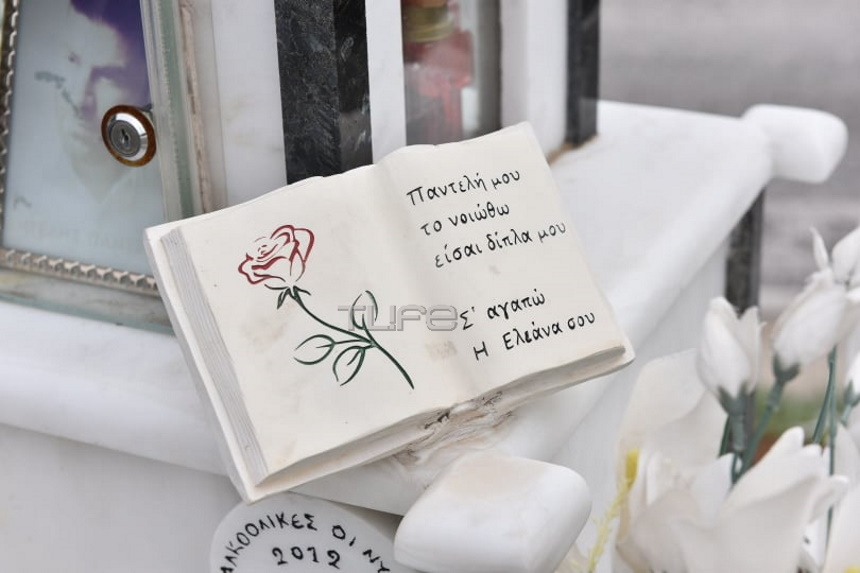 Παντελή μου
το νοιώθω
είσαι δίπλα μου
Σ' αγαπώ
Η Ελεάνα σου
TLIFE
ΑΛΚΟΟΛΙΚΕΣ ΟΙ ΝΥ
2012